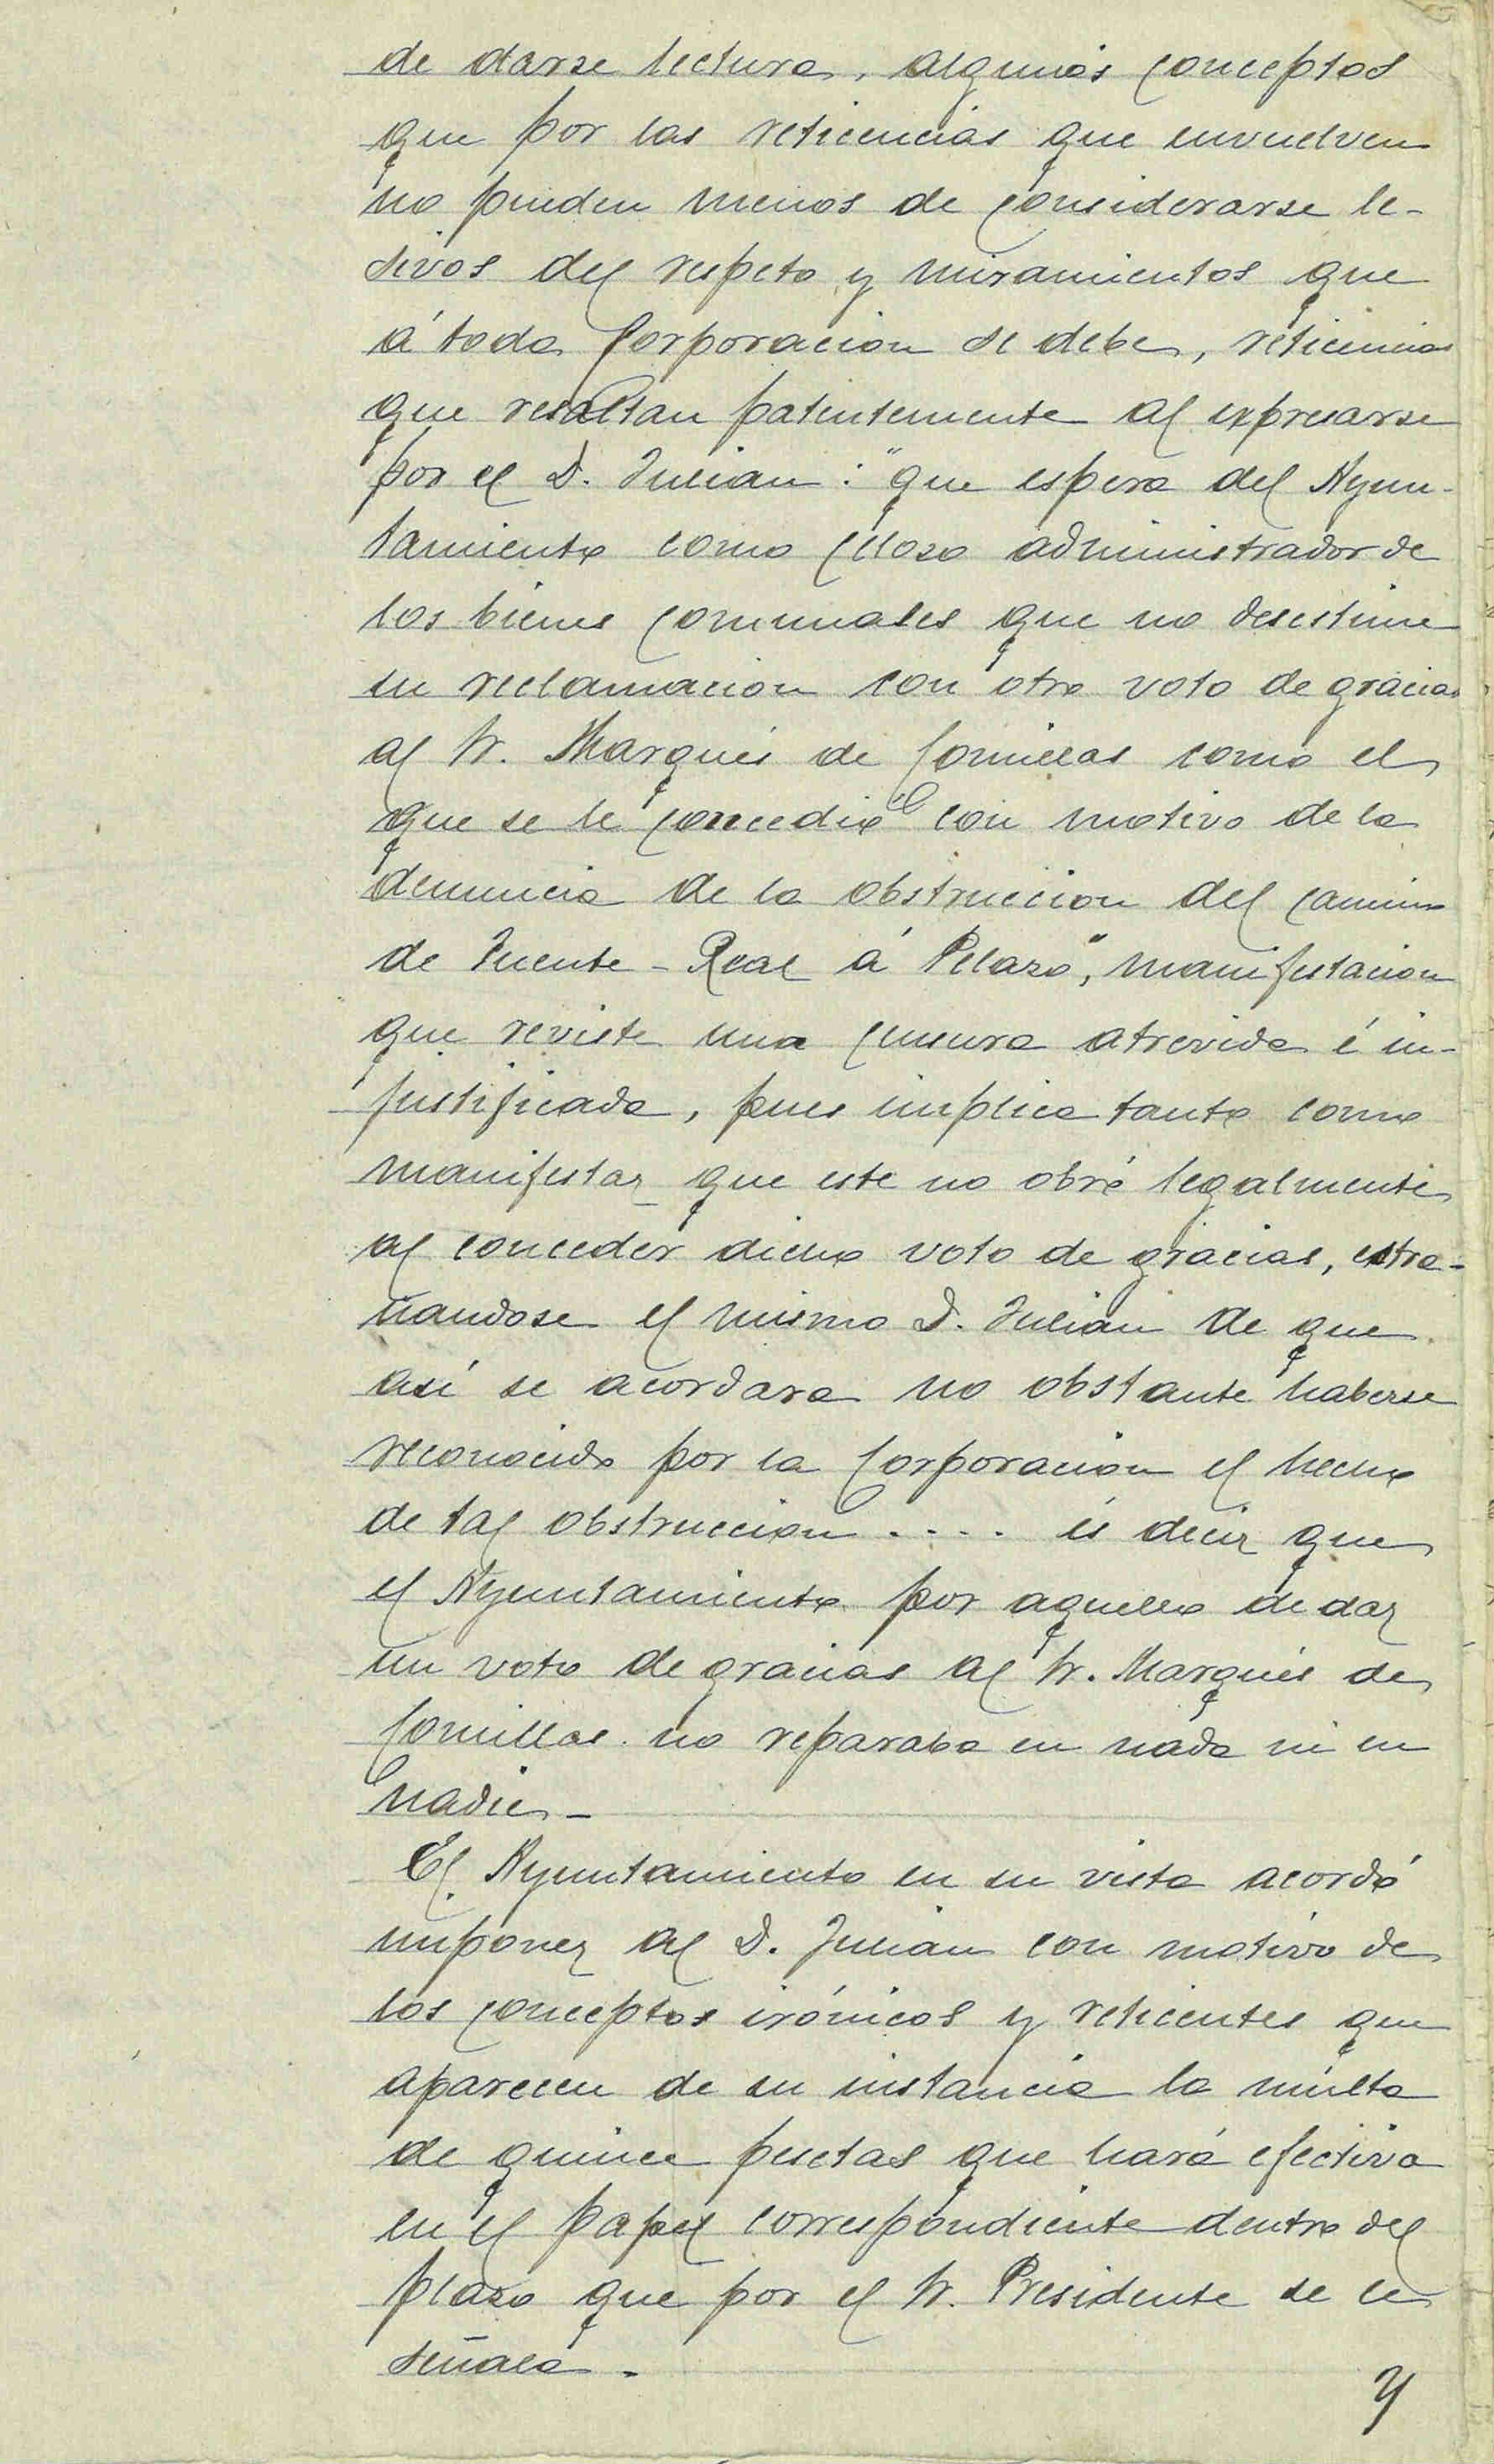 de darse lectura, algunos conceptos
que por las reticencias que envuelven
no pueden menos de considerarse le-
sivos del respeto y miramientos que
á toda Corporacion se debe, reticencias
que resaltan patentemente al expresarse
por el D. Julian: "que espera del Ayun-
tamiento como celoso administrador de
los bienes comunales que no desestime
su reclamacion con otro voto de gracias
al Sr. Marqués de Comillas como el
que se le concedió con motivo de la
denuncia de la obstruccion del camino
de Fuente-Real á Pelazo", manifestacion
que reviste una censura atrevida é in-
justificada, pues implica tanto como
manifestar que este no obró legalmente
al conceder dicho voto de gracias, estra-
ñandose el mismo D. Julian de que
asi se acordara no obstante haberse
reconocido por la Corporacion el hecho
de tal obstruccion .... és decir que
el Ayuntamiento por aquello de dar
un voto de gracias al Sr. Marqués de
Comillas no reparaba en nada ni en
nadie_
El Ayuntamiento en su vista acordó
imponer al D. Julian con motivo de
los conceptos irónicos y reticentes que
aparecen de su instancia la multa
de quince pesetas que hará efectiva
en el papel correspondiente dentro del
plazo que por el Sr. Presidente se le
señale.
y